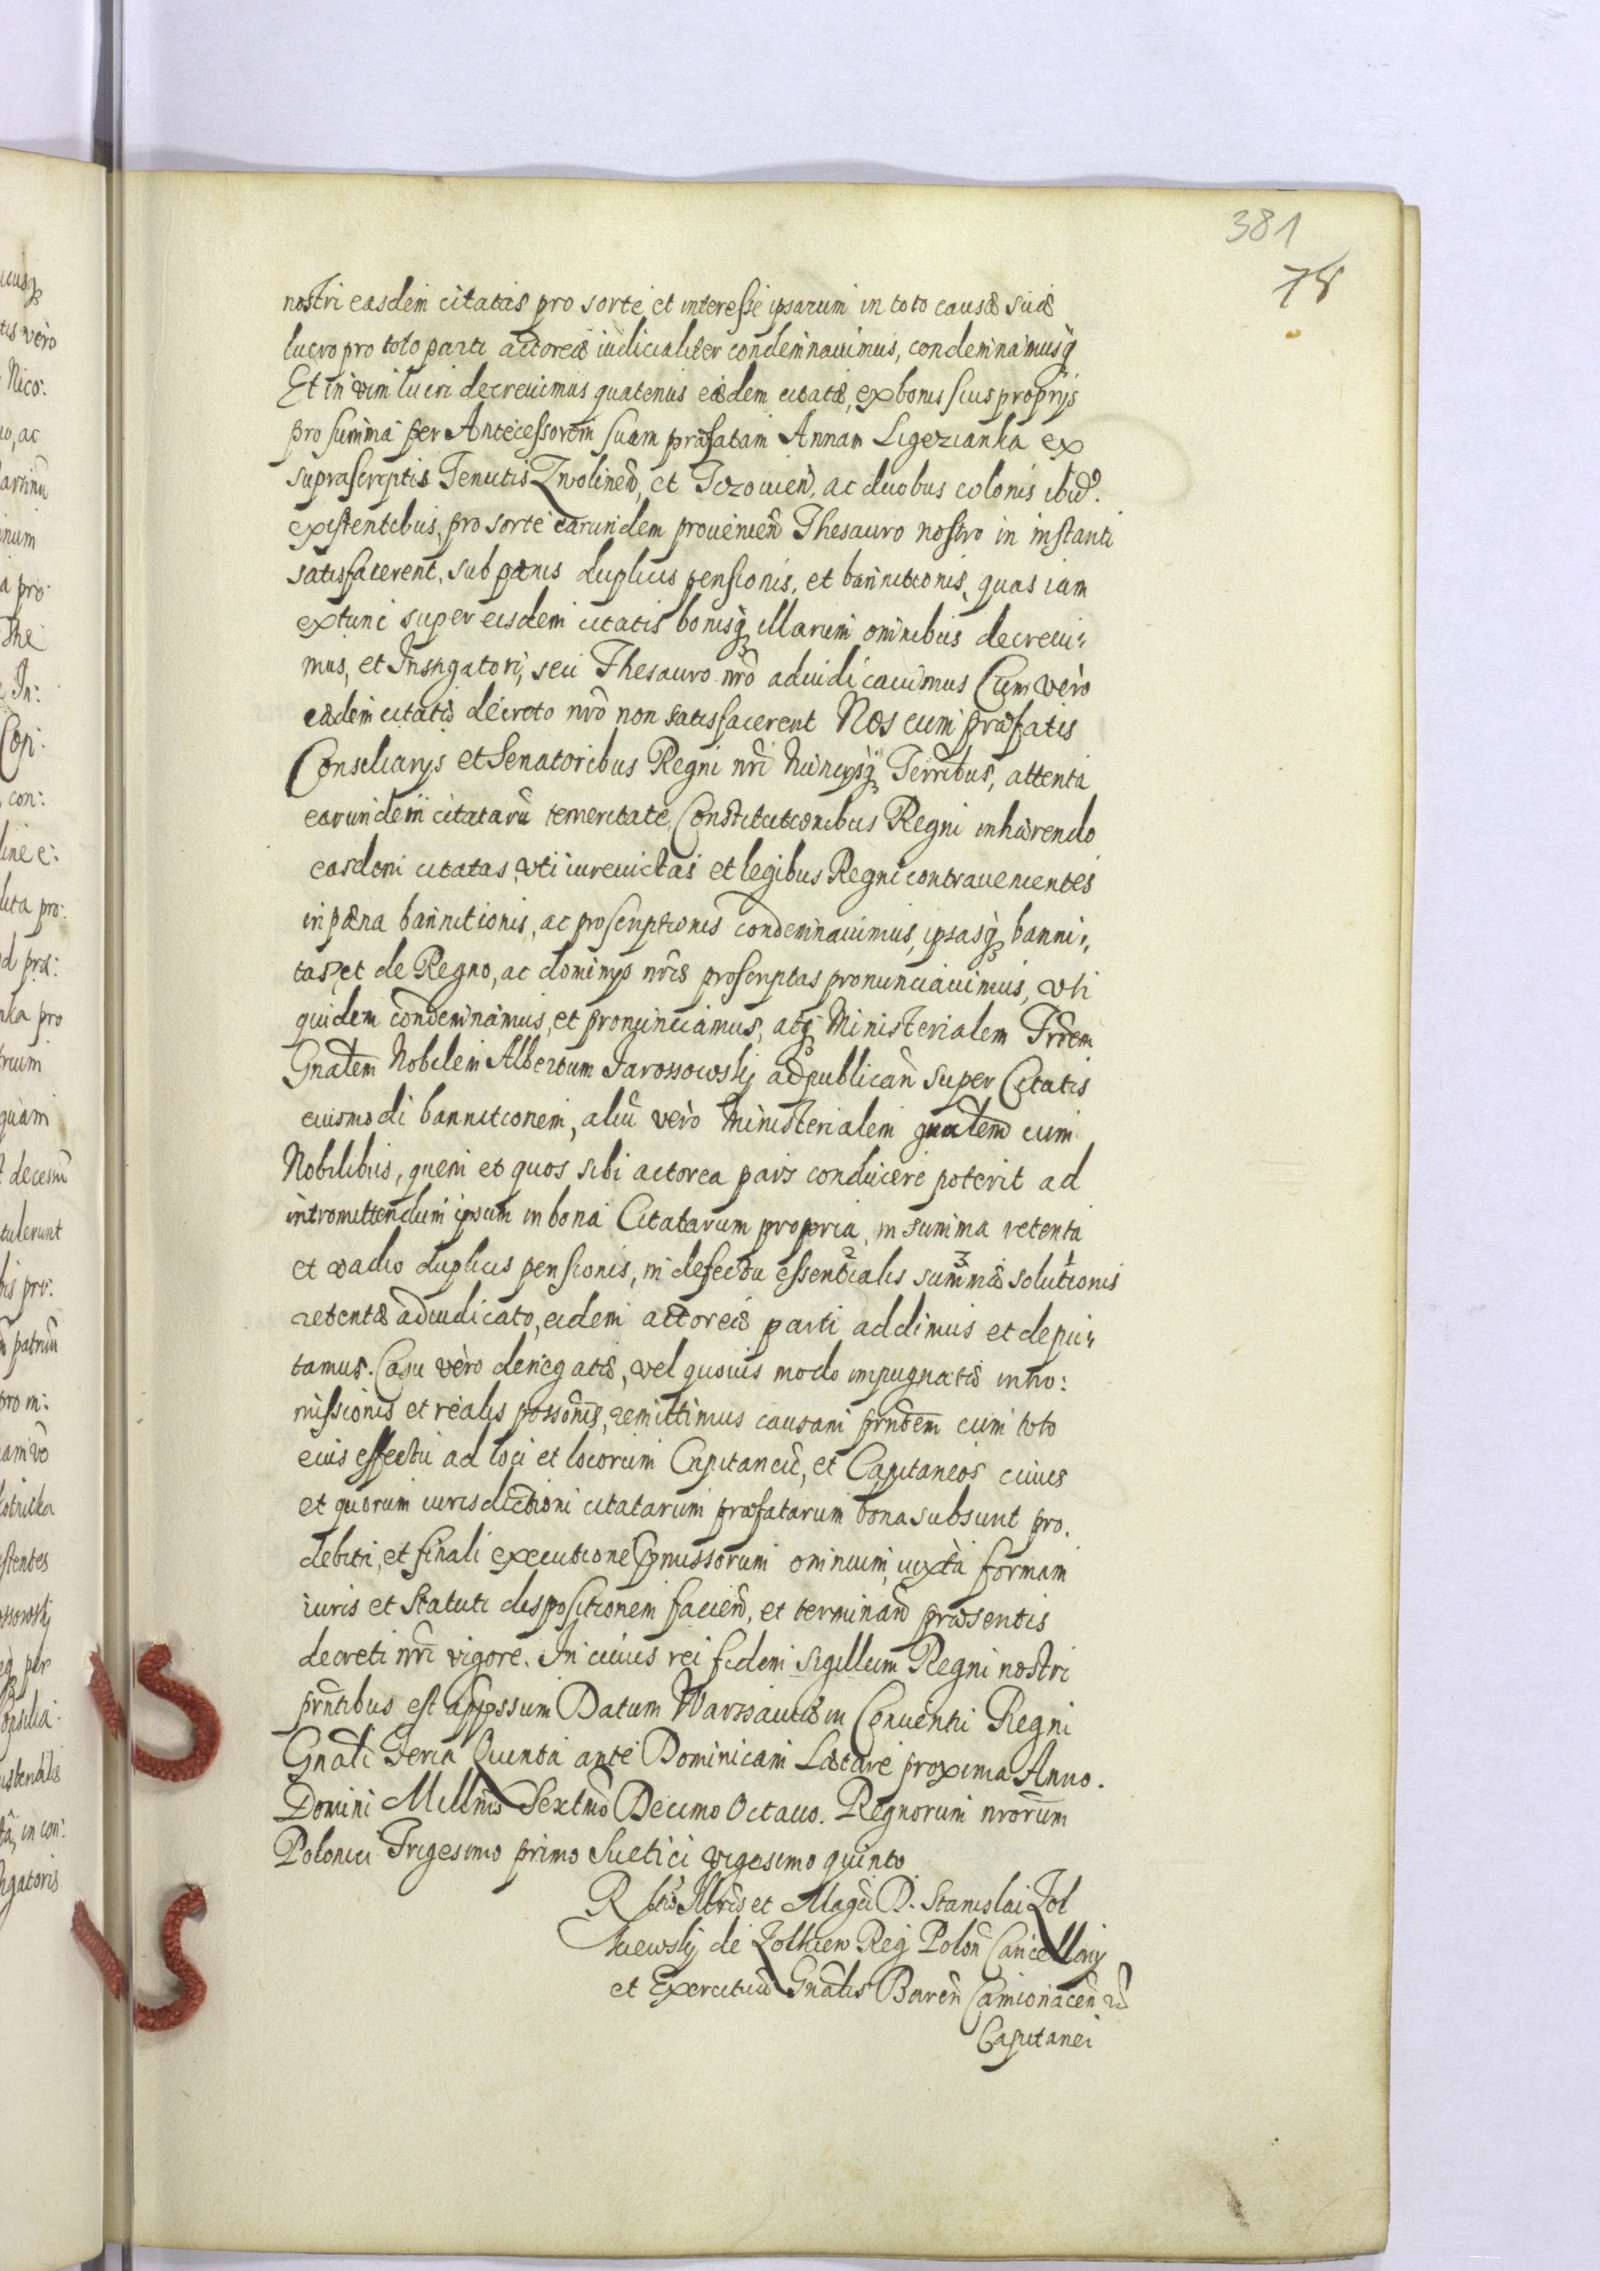 381
78
nostri easdem citatas pro sorte et interesse ipsarum in toto causæ suæ
lucro pro toto parti actoreæ iudicialiter condemnauimus, condemnamusq
Et in vim lucri decreuimus quatenus eædem citatæ, ex bonis suis proprijs
pro summa per Antecessorem suam præfatam Annam Ligezianka ex
suprascriptis Tenutis Zwolinen, et Jezowien, ac duobus colonis ibid.
existentibus, pro sorte earundem prouenien Thesauro nostro in instanti
satisfacerent, sub pænis duplicis pensionis, et bannitionis, quas iam
extunc super eisdem citatis bonisq illarum omnibus decreui=
mus, et Instigatori, seu Thesauro nro adiudicauimus Cum vero
eædem citatæ decreto nro non satisfacerent Nos cum præfatis
Consiliarijs et Senatoribus Regni nri Nuncijsq Terribus, attenta
earundem citataru temeritate, Constitutionibus Regni inhærendo
easdem citatas, vti iureuictas et legibus Regni contrauenientes
in pæna bannitionis, ac proscriptionis condemnauimus, ipsasq banni=
tas, et de Regno, ac dominijs nris proscriptas pronunciauimus, vti
quidem condemnamus, et pronunciamus, atq Ministerialem Trrem
Gnalem Nobilem Albertum Jarossowskj ad publican super Citatis
eiusmodi bannitionem, aliu vero Ministerialem gnalem cum
Nobilibus, quem et quos sibi actorea pars conducere poterit ad
intromittendum ipsum in bona Citatarum propria, in summa retenta
et vadio duplicis pensionis, in defectu essentialis 2 summæ 3 solutionis 1
retentæ adiudicato, eidem actoreæ parti addimus et depu=
tamus. Casu vero denegatæ, vel quouis modo impugnatæ intro:
missionis et realis possonis, remittimus causam prntem cum toto
eius effectu ad loci et locorum Capitaneu, et Capitaneos cuius
et quorum iurisdictioni citatarum præfatarum bona subsunt pro
debita, et finali executione Pmissorum omnium, iuxta formam
iuris et Statuti dispositionem facien, et terminan præsentis
decreti nri vigore. In cuius rei fidem sigillum Regni nostri
prntibus est appssum Datum Warssauiæ in Conuentu Regni
Gnali Feria Quinta ante Dominicam Lætare proxima Anno.
Domini Millmo Sextmo Decimo Octauo. Regnorum nrorum
Polonici Trigesimo primo Suetici vigesimo quinto
R Illris et Magci D. Stanislai Zol
kiewskj de Zolkiew Reg Polon Cancellarij
et Exercituu Gnalis Baren Camionacen
Capitanei